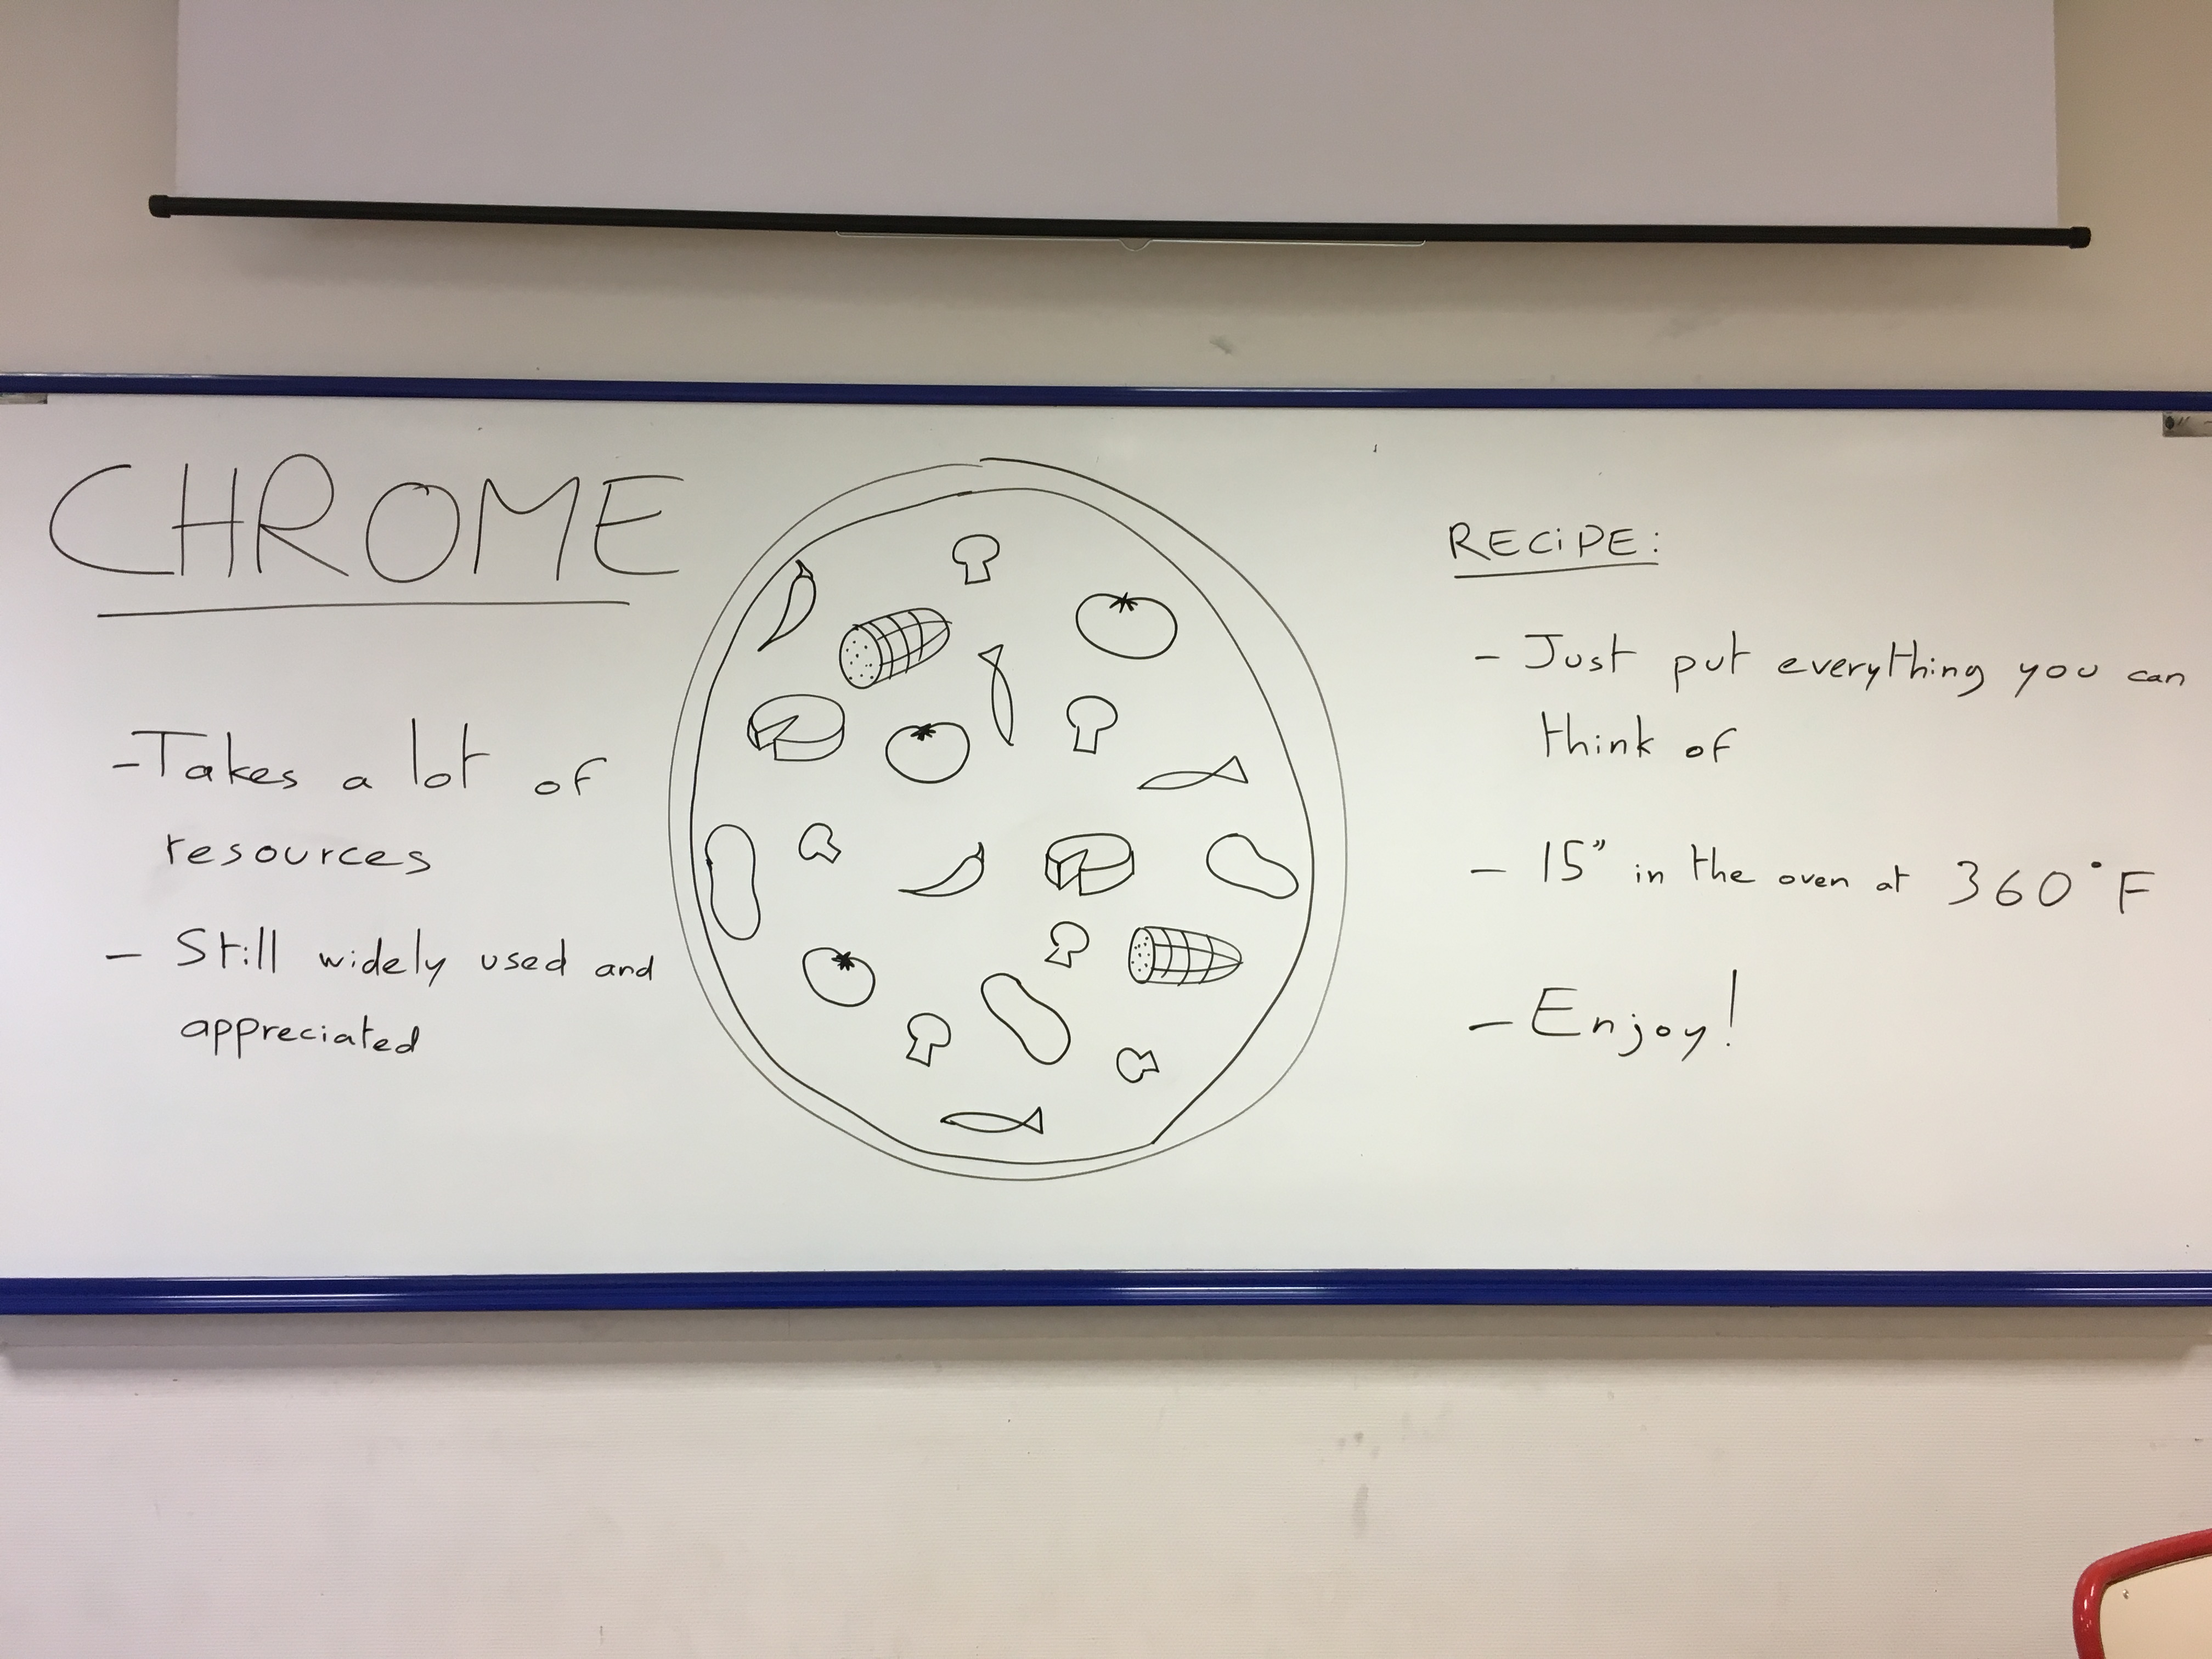 CHROME
- Takes a lot of
resources
- Still widely used and
appreciated
RECiPE:
- Just put everything you can
think of
- 15" in the oven at 360°F
- Enjoy!